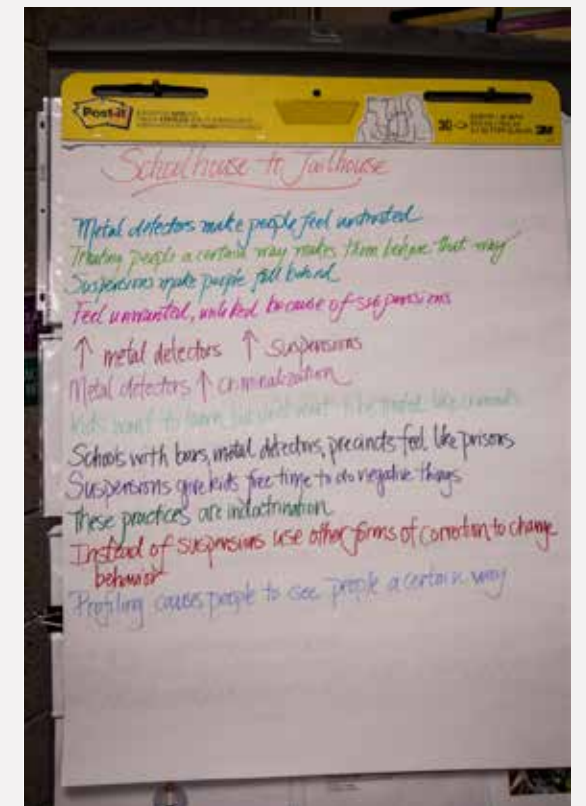 Post-it
3M
Schoolhouse to Jailhouse
Metal detectors make people feel untrusted
Treating people a certain way makes them behave that way
Suspensions make people fall behind
Feel unwanted, unliked because of suspensions
↑ metal detectors ↑ suspensions
Metal detectors ↑ criminalization
Kids want to learn but don't want to be treated like criminals
Schools with bars, metal detectors, precincts feel like prisons
Suspensions give kids free time to do negative things
These practices are indoctrination
Instead of suspensions use other forms of correction to change
behavior
Profiling causes people to see people a certain way